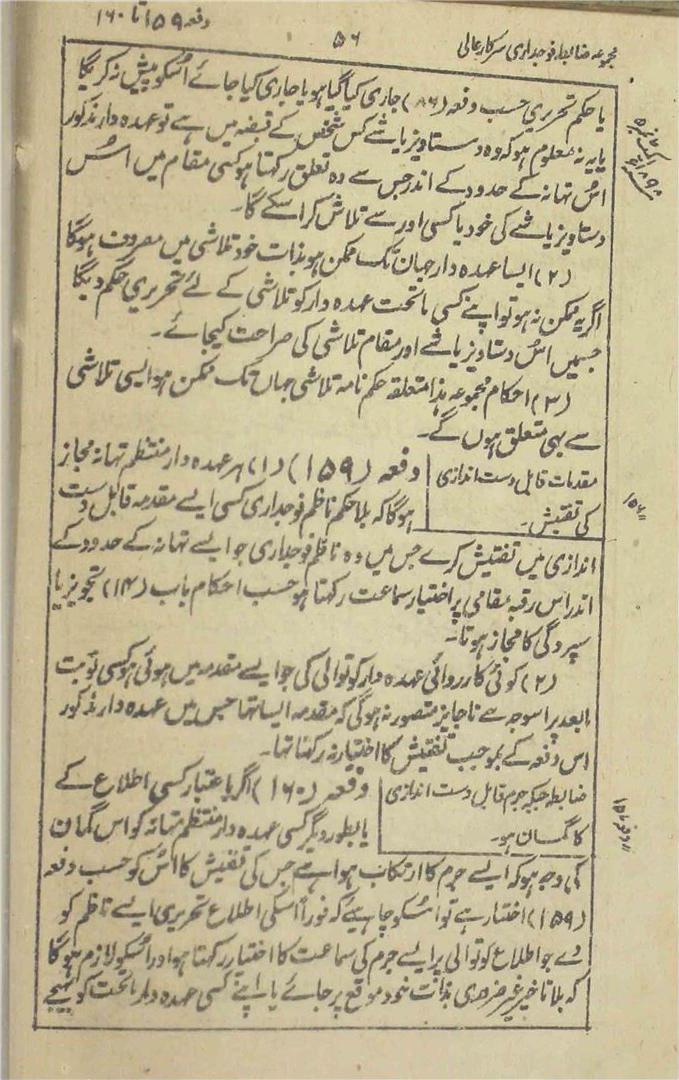 دفعہ ۱۵۹ تا ۱۶۰
۵۶
مجموعہ ضابطہ فوجداری سرکار عالی
یا حکم تحریری حسب دفعہ (۸۶) جاری کیا گیا ہو یا جاری کیا جائے اُسکو پیش نہ کریگا
یا یہ نہ معلوم ہو کہ وہ دستاویز یا شے کس شخص کے قبضہ میں ہے تو عہدہ دار مذکور
اُس تہانہ کے حدود کے اندر جس سے وہ تعلق رکہتا ہو کسی مقام میں اُس
دستاویز یا شے کی خود یا کسی اور سے تلاش کرا سکے گا۔
(۲) ایسا عہدہ دار جہان تک ممکن ہو بذات خود تلاشی میں مصروف ہوگا
اگر یہ ممکن نہ ہو تو اپنے کسی ماتحت عہدہ دار کو تلاشی کے لئے تحریری حکم دیگا
جسمیں اُس دستاویز یا شے اور مقام تلاشی کی صراحت کیجائے۔
(۳) احکام مجموعہ ہذا متعلقہ حکم نامہ تلاشی جہاں تک ممکن ہو ایسی تلاشی
سے بہی متعلق ہوں گے۔
مقدمات قابل دست اندازی
کی تفتیش۔
دفعہ (۱۵۹) (۱) ہر عہدہ دار منتظم تہانہ مجاز
ہوگا کہ بلا حکم ناظم فوجداری کسی ایسے مقدمہ قابل دست
اندازی میں تفتیش کرے جس میں وہ ناظم فوجداری جو ایسے تہانہ کے حدود کے
اندر اس رقبہ مقامی پر اختیار سماعت رکہتا ہو حسب احکام باب (۱۴) تجویز یا
سپردگی کا مجاز ہوتا۔
(۲) کوئی کارروائی عہدہ دار کوتوالی کی جو ایسے مقدمہ میں ہوئی ہو کسی نوبت
مابعد پر اسوجہ سے ناجایز متصور نہ ہوگی کہ مقدمہ ایسا تہا جس میں عہدہ دار مذکور
اس دفعہ کے بموجب تفتیش کا اختیار نہ رکہتا تہا۔
ضابطہ جبکہ جرم قابل دست اندازی
کا گمان ہو۔
دفعہ (۱۶۰) اگر باعتبار کسی اطلاع کے
یا بطور دیگر کسی عہدہ دار منتظم تہانہ کو اس گمان
کی وجہ ہو کہ ایسے جرم کا ارتکاب ہوا ہے جس کی تفتیش کا اُس کو حسب دفعہ
(۱۵۹) اختیار ہے تو اُسکو چاہیئے کہ فوراً اُسکی اطلاع تحریری ایسے ناظم کو
دے جو اطلاع کوتوالی پر ایسے جرم کی سماعت کا اختیار رکہتا ہو اور اُسکو لازم ہوگا
کہ بلا تاخیر غیر ضروری بذات خود موقع پر جائے یا اپنے کسی عہدہ دار ماتحت کو بہیجے